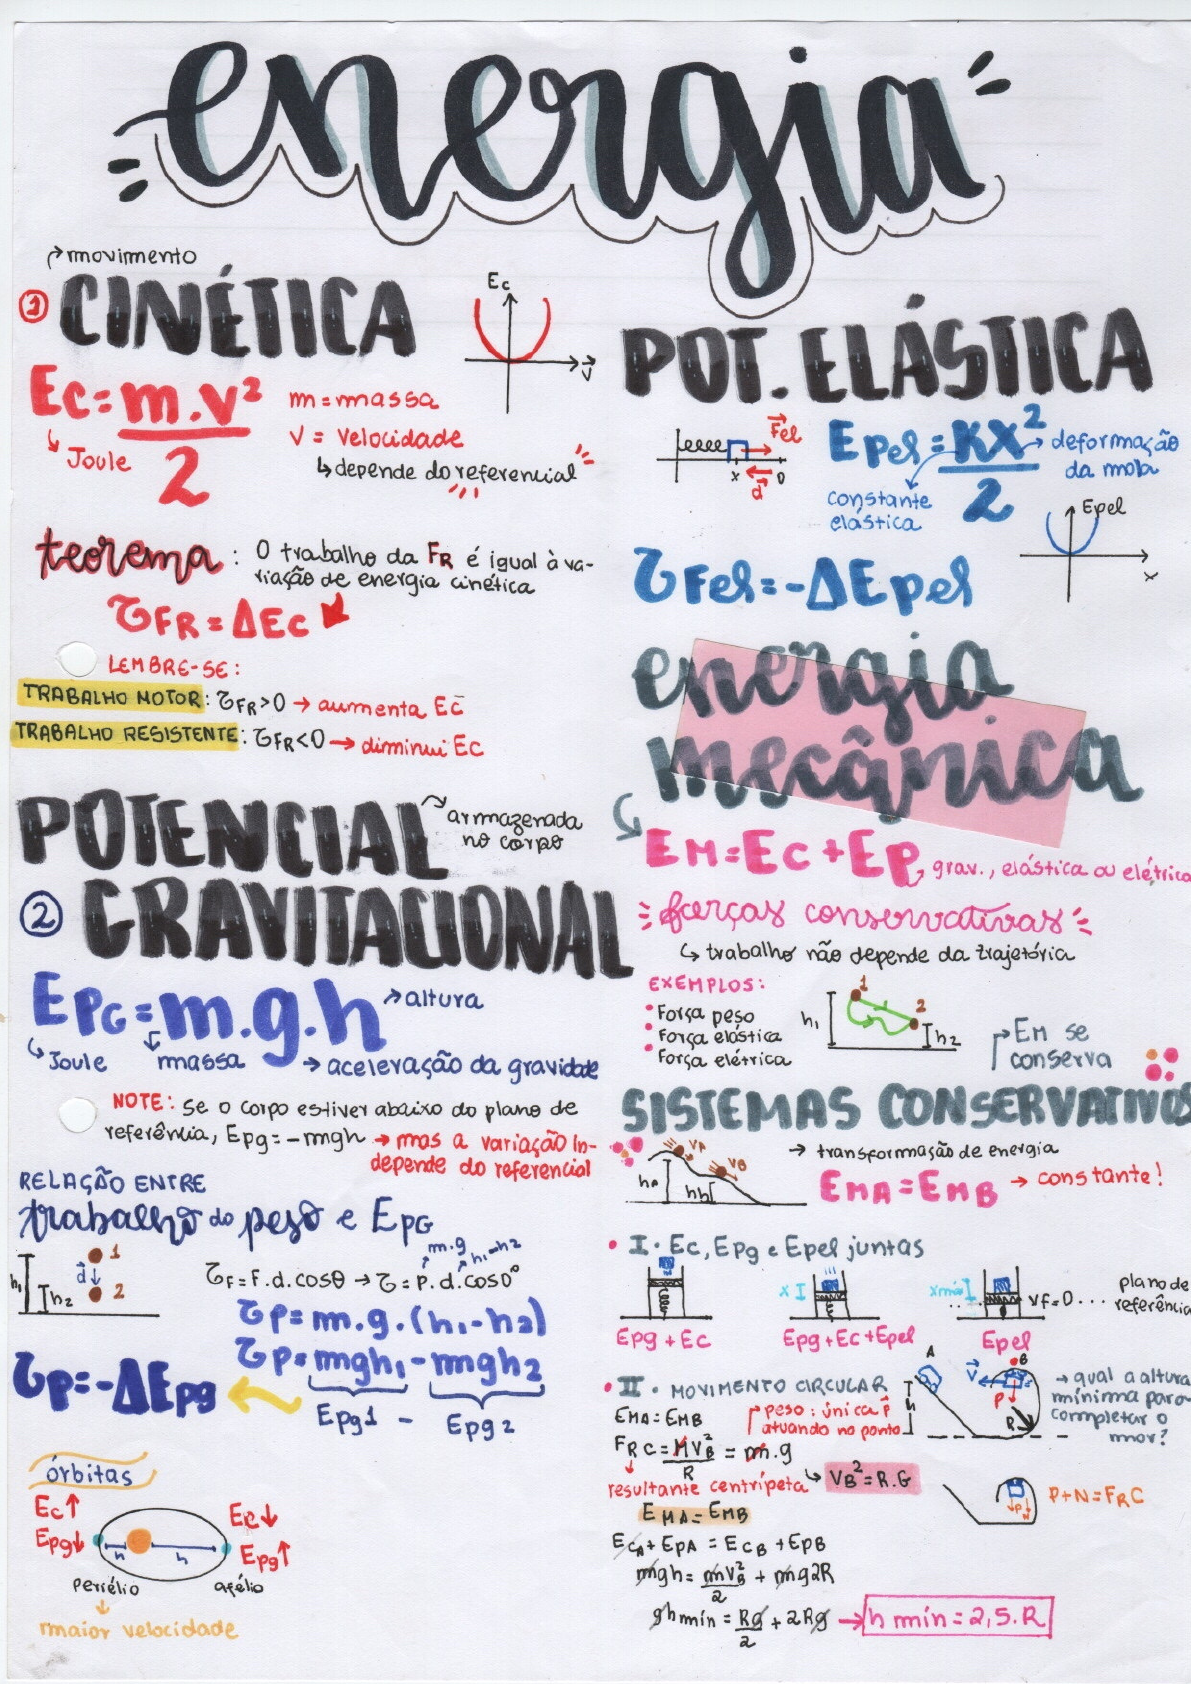 energia
movimento
1 CINÉTICA
Ec
v
Ec = m.v²
2
Joule
m = massa
v = velocidade
depende do referencial
teorema: O trabalho da FR é igual à va-
riação de energia cinética
τFR = ΔEc
LEMBRE-SE:
TRABALHO MOTOR: τFR>0 → aumenta Ec
TRABALHO RESISTENTE: τFR<0 → diminui Ec
POTENCIAL
armazenada
no corpo
2 GRAVITACIONAL
EPG = m.g.h
altura
Joule massa → aceleração da gravidade
NOTE: se o corpo estiver abaixo do plano de
referência, Epg = -mgh → mas a variação in-
depende do referencial
RELAÇÃO ENTRE
trabalho do peso e EPG
h1 h2 d 1 2
m.g h1-h2
τF = F.d.cosθ → τ = P.d.cos0°
τP = m.g.(h1-h2)
τP = mgh1 - mgh2
Epg1 - Epg2
τP = -ΔEpg
órbitas
Ec↑
Epg↓
Ec↓
Epg↑
h h
periélio afélio
maior velocidade
POT. ELÁSTICA
Fel
x 0
d
Epel = Kx²
2
deformação
da mola
constante
elástica
Epel
x
τFel = -ΔEpel
energia
mecânica
EM = Ec + Ep
grav., elástica ou elétrica
forças conservativas
trabalho não depende da trajetória
EXEMPLOS:
• Força peso
• Força elástica
• Força elétrica
h1 1 2 h2
Em se
conserva
SISTEMAS CONSERVATIVOS
hA VA VB hB
→ transformação de energia
EMA = EMB → constante!
• I. Ec, Epg e Epel juntas
x
xmáx
vf=0...
plano de
referência
Epg + Ec
Epg + Ec + Epel
Epel
• II. MOVIMENTO CIRCULAR
A h V B P R
→ qual a altura
mínima para
completar o
mov?
EMA = EMB
peso: única F
atuando no ponto
FRC = MVB² = m.g
R
resultante centrípeta
VB² = R.G
EMA = EMB
P N
P+N = FRC
EcA + EPA = ECB + EPB
mgh = mVB² + mg2R
2
gh mín = Rg + 2Rg → h mín = 2,5.R
2